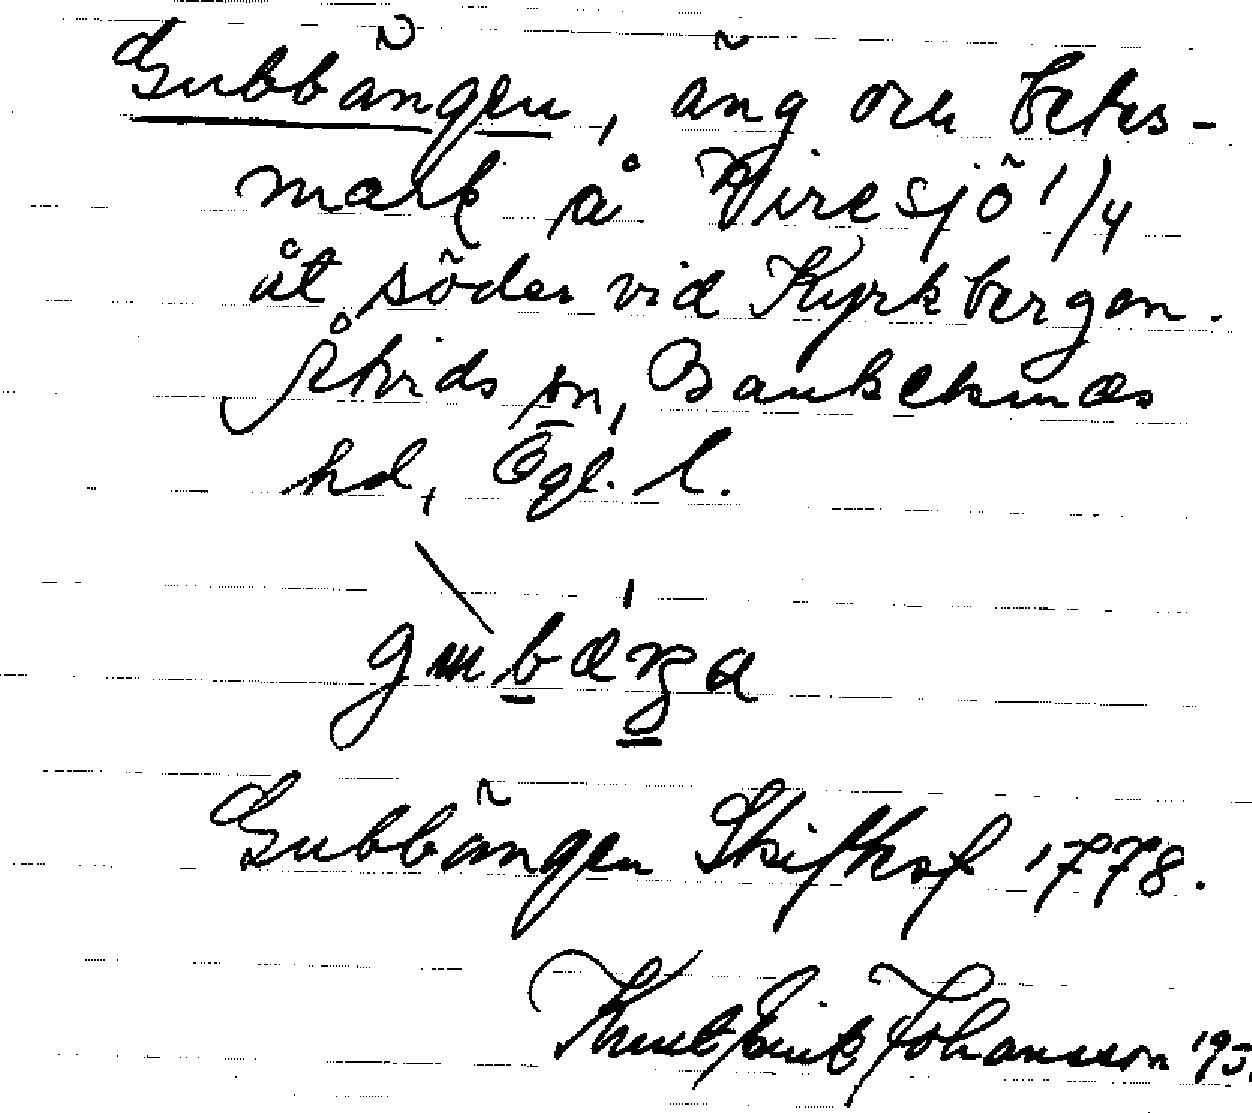 Gubbängen, äng och betes-
mark å Viresjö 1/4
åt söder vid Kyrkbergen.
Åtvids sn, Bankekinds
hd, Ögl. l.
Gubbängen Skifksf 1778.
Knut Erik Johansson